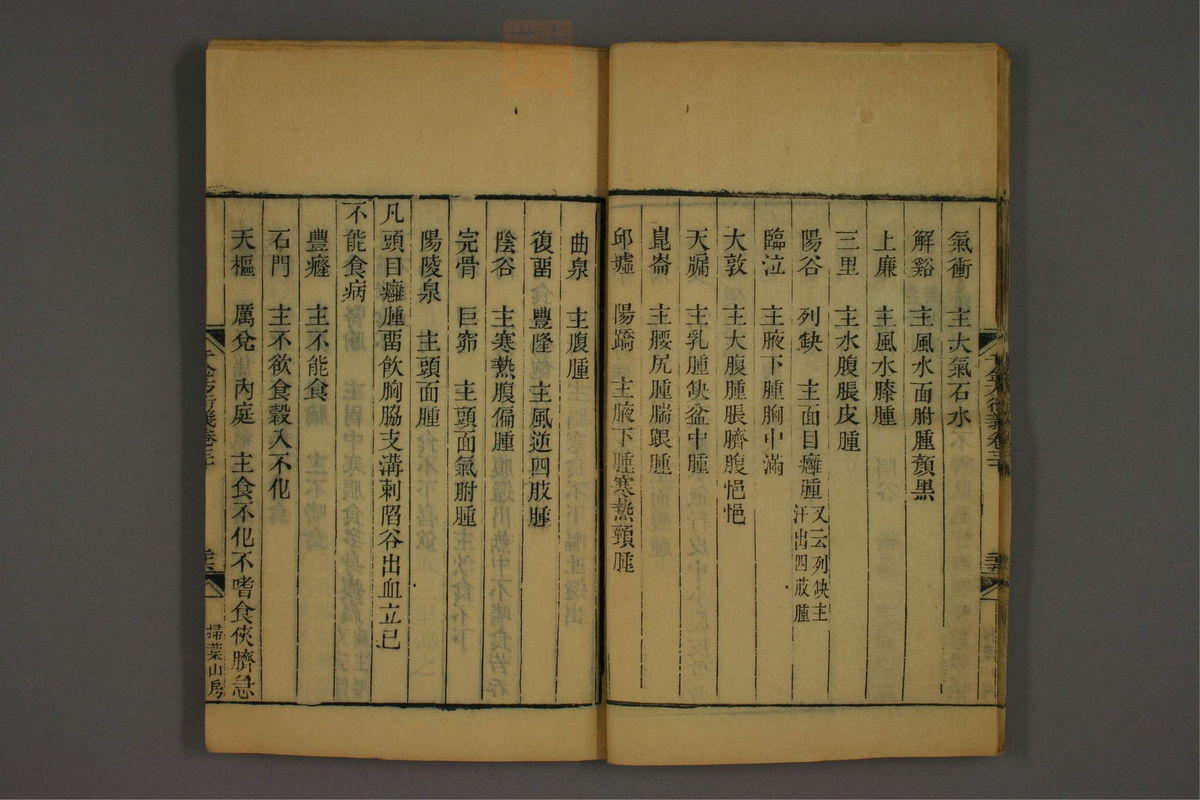 氣衝　主大氣石水
解谿　主風水面胕腫顏黑
上廉　主風水膝腫
三里　主水腹脹皮腫
陽谷　列缺　主面目癰腫又云列缺主汗出四肢腫
臨泣　主腋下腫胸中滿
大敦　主大腹腫脹臍腹悒悒
天牖　主乳腫缺盆中腫
崑崙　主腰尻腫腨跟腫
邱墟　陽蹻　主腋下腫寒熱頸腫
曲泉　主腹腫
復畱　豐隆　主風逆四肢腫
陰谷　主寒熱腹偏腫
完骨　巨窌　主頭面氣胕腫
陽陵泉　主頭面腫
凡頭目癰腫畱飲胸脇支溝刺陷谷出血立已
不能食病
豐癃　主不能食
石門　主不欲食穀入不化
天樞　厲兌　內庭　主食不化不嗜食俠臍急
掃葉山房